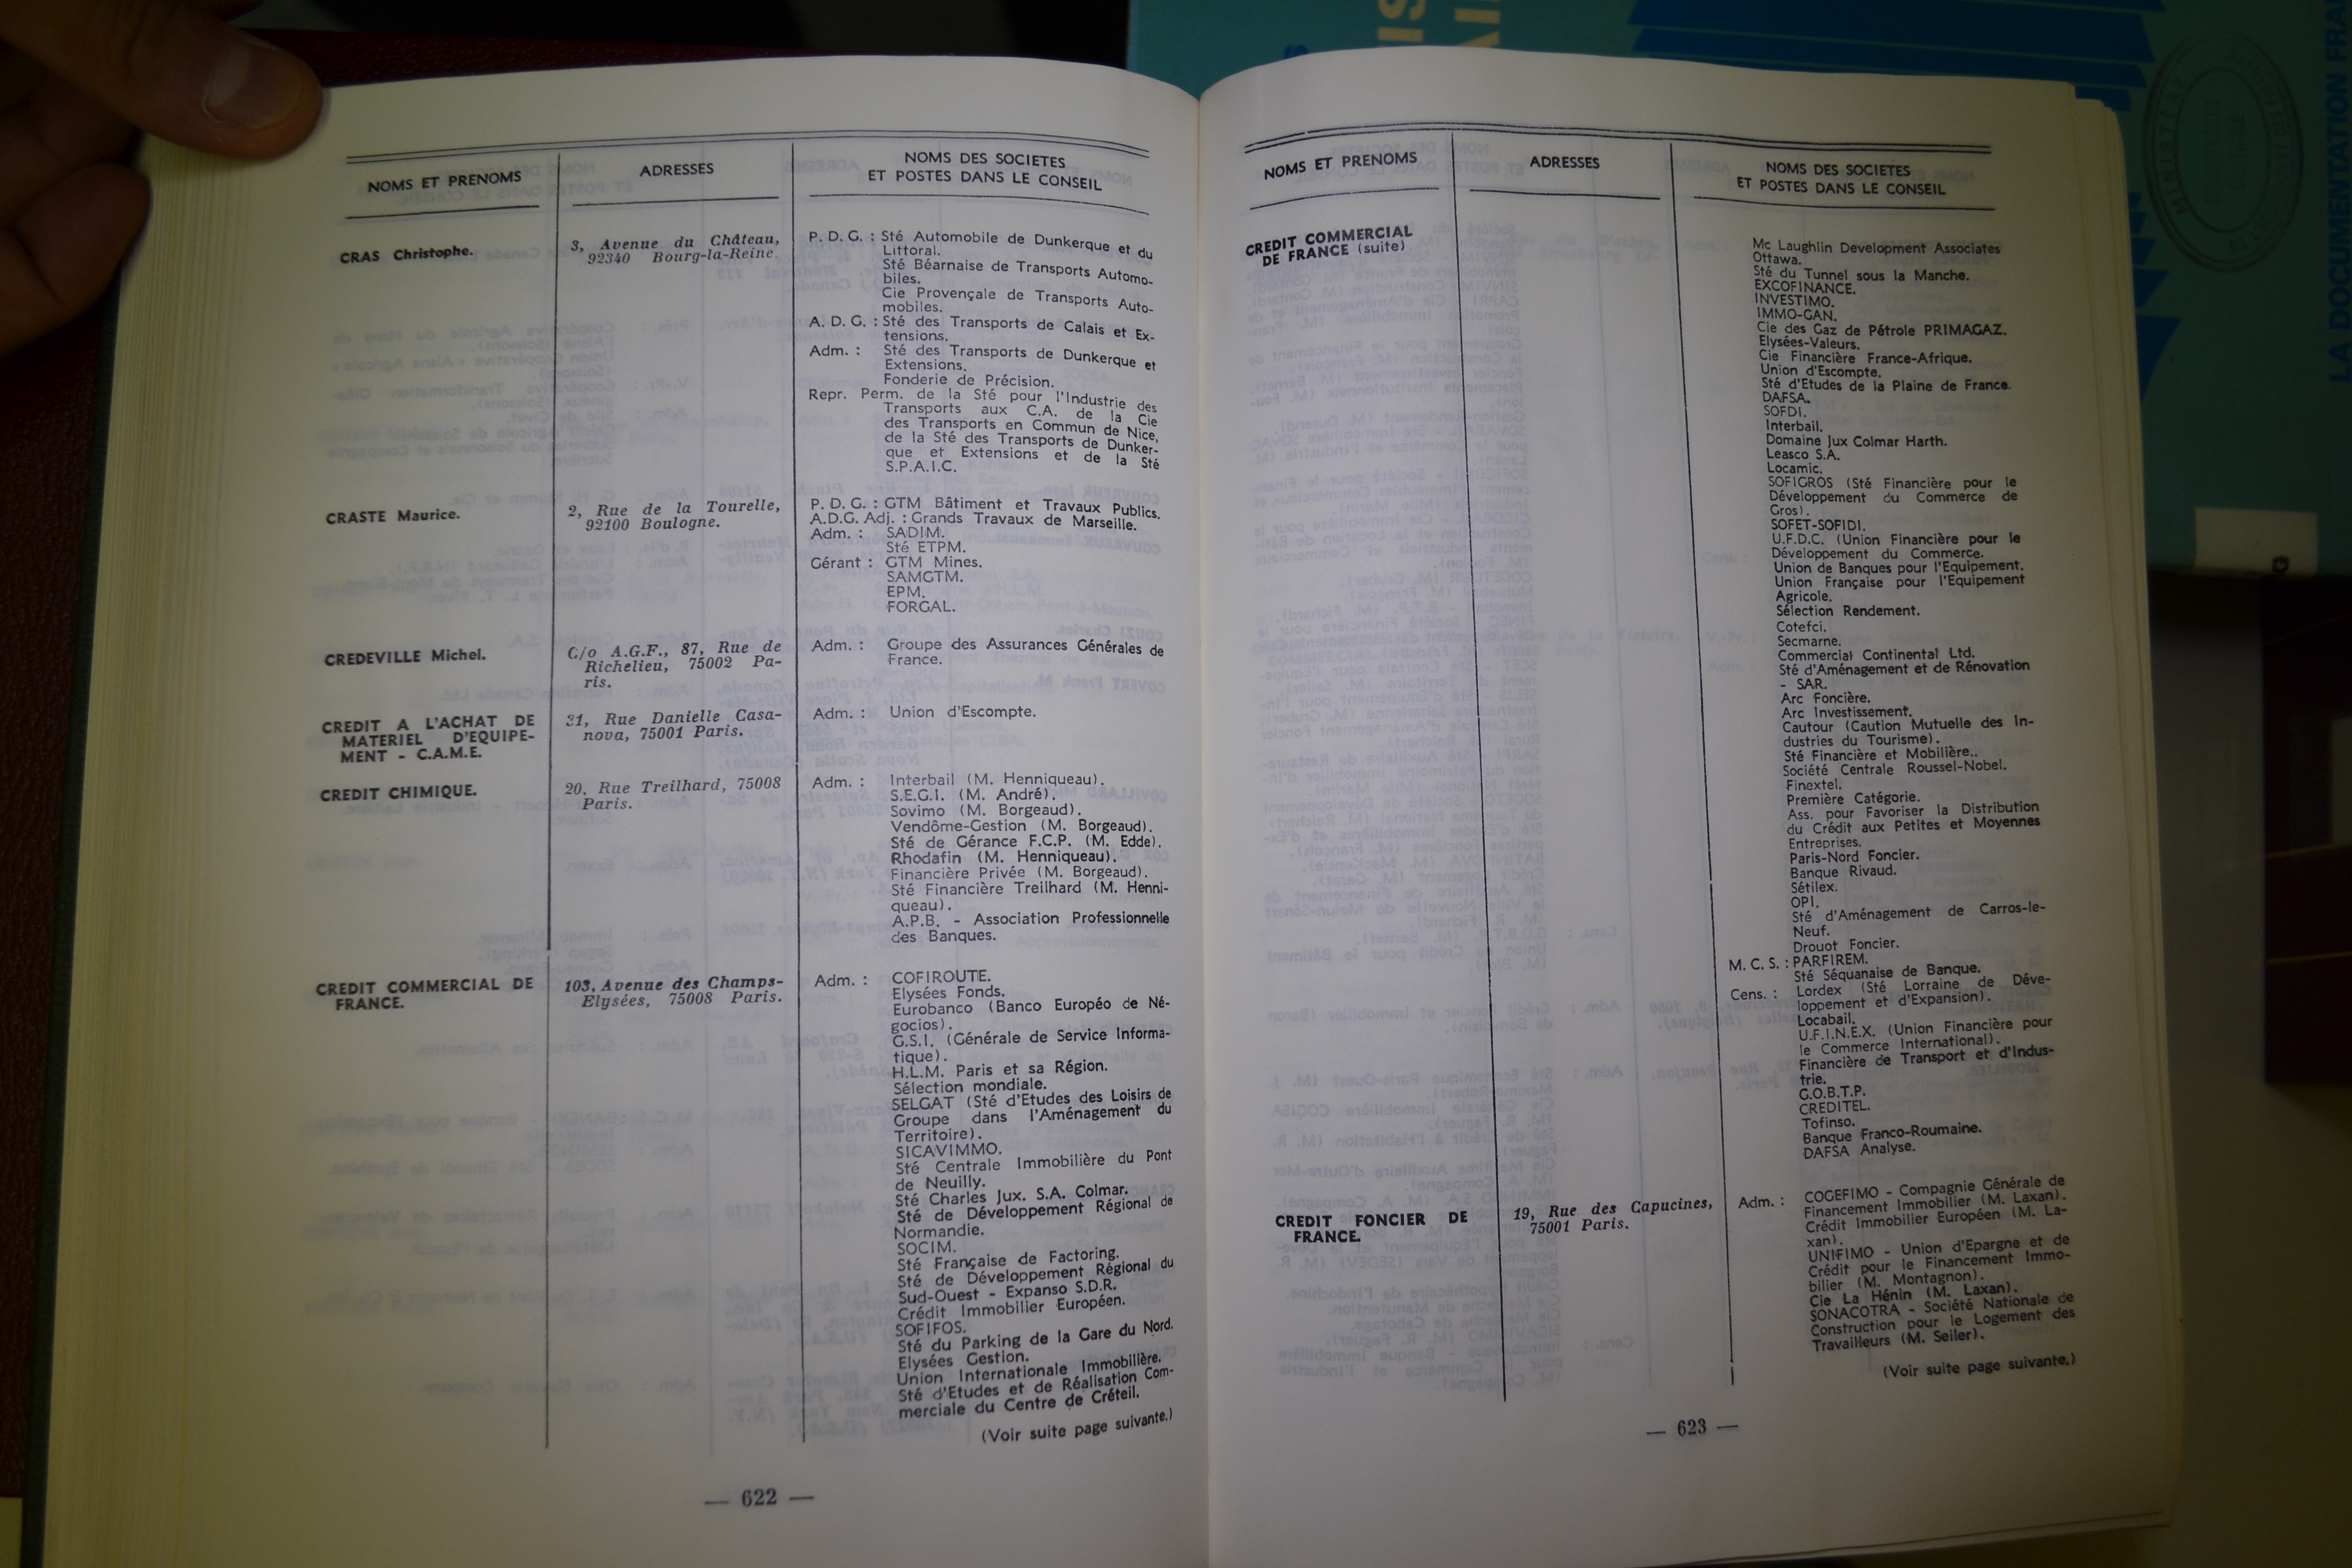 NOMS ET PRENOMS
ADRESSES
NOMS DES SOCIETES
ET POSTES DANS LE CONSEIL
CRAS Christophe.
3, Avenue du Château,
92340 Bourg-la-Reine.
P. D. G. : Sté Automobile de Dunkerque et du
Littoral.
Sté Béarnaise de Transports Automo-
biles.
Cie Provençale de Transports Auto-
mobiles.
A. D. G. : Sté des Transports de Calais et Ex-
tensions.
Adm. : Sté des Transports de Dunkerque et
Extensions.
Fonderie de Précision.
Repr. Perm. de la Sté pour l'Industrie des
Transports aux C.A. de la Cie
des Transports en Commun de Nice,
de la Sté des Transports de Dunker-
que et Extensions et de la Sté
S.P.A.I.C.
CRASTE Maurice.
2, Rue de la Tourelle,
92100 Boulogne.
P. D. G. : GTM Bâtiment et Travaux Publics.
A.D.G. Adj. : Grands Travaux de Marseille.
Adm. : SADIM.
Sté ETPM.
Gérant : GTM Mines.
SAMGTM.
EPM.
FORGAL.
CREDEVILLE Michel.
C/o A.G.F., 87, Rue de
Richelieu, 75002 Pa-
ris.
Adm. : Groupe des Assurances Générales de
France.
CREDIT A L'ACHAT DE
MATERIEL D'EQUIPE-
MENT - C.A.M.E.
31, Rue Danielle Casa-
nova, 75001 Paris.
Adm. : Union d'Escompte.
CREDIT CHIMIQUE.
20, Rue Treilhard, 75008
Paris.
Adm. : Interbail (M. Henniqueau).
S.E.G.I. (M. André).
Sovimo (M. Borgeaud).
Vendôme-Gestion (M. Borgeaud).
Sté de Gérance F.C.P. (M. Edde).
Rhodafin (M. Henniqueau).
Financière Privée (M. Borgeaud).
Sté Financière Treilhard (M. Henni-
queau).
A.P.B. - Association Professionnelle
des Banques.
CREDIT COMMERCIAL DE
FRANCE.
103, Avenue des Champs-
Elysées, 75008 Paris.
Adm. : COFIROUTE.
Elysées Fonds.
Eurobanco (Banco Européo de Né-
gocios).
G.S.I. (Générale de Service Informa-
tique).
H.L.M. Paris et sa Région.
Sélection mondiale.
SELGAT (Sté d'Etudes des Loisirs de
Groupe dans l'Aménagement du
Territoire).
SICAVIMMO.
Sté Centrale Immobilière du Pont
de Neuilly.
Sté Charles Jux. S.A. Colmar.
Sté de Développement Régional de
Normandie.
SOCIM.
Sté Française de Factoring.
Sté de Développement Régional du
Sud-Ouest - Expanso S.D.R.
Crédit Immobilier Européen.
SOFIFOS.
Sté du Parking de la Gare du Nord.
Elysées Gestion.
Union Internationale Immobilière.
Sté d'Etudes et de Réalisation Com-
merciale du Centre de Créteil.
(Voir suite page suivante.)
— 622 —
NOMS ET PRENOMS
ADRESSES
NOMS DES SOCIETES
ET POSTES DANS LE CONSEIL
CREDIT COMMERCIAL
DE FRANCE (suite).
Mc Laughlin Development Associates
Ottawa.
Sté du Tunnel sous la Manche.
EXCOFINANCE.
INVESTIMO.
IMMO-GAN.
Cie des Gaz de Pétrole PRIMAGAZ.
Elysées-Valeurs.
Cie Financière France-Afrique.
Union d'Escompte.
Sté d'Etudes de la Plaine de France.
DAFSA.
SOFDI.
Interbail.
Domaine Jux Colmar Harth.
Leasco S.A.
Locamic.
SOFIGROS (Sté Financière pour le
Développement du Commerce de
Gros).
SOFET-SOFIDI.
U.F.D.C. (Union Financière pour le
Développement du Commerce.
Union de Banques pour l'Equipement.
Union Française pour l'Equipement
Agricole.
Sélection Rendement.
Cotefci.
Secmarne.
Commercial Continental Ltd.
Sté d'Aménagement et de Rénovation
- SAR.
Arc Foncière.
Arc Investissement.
Cautour (Caution Mutuelle des In-
dustries du Tourisme).
Sté Financière et Mobilière..
Société Centrale Roussel-Nobel.
Finextel.
Première Catégorie.
Ass. pour Favoriser la Distribution
du Crédit aux Petites et Moyennes
Entreprises.
Paris-Nord Foncier.
Banque Rivaud.
Sétilex.
OPI.
Sté d'Aménagement de Carros-le-
Neuf.
Drouot Foncier.
M. C. S. : PARFIREM.
Sté Séquanaise de Banque.
Cens. : Lordex (Sté Lorraine de Déve-
loppement et d'Expansion).
Locabail.
U.F.I.N.E.X. (Union Financière pour
le Commerce International).
Financière de Transport et d'Indus-
trie.
G.O.B.T.P.
CREDITEL.
Tofinso.
Banque Franco-Roumaine.
DAFSA Analyse.
CREDIT FONCIER DE
FRANCE.
19, Rue des Capucines,
75001 Paris.
Adm. : COGEFIMO - Compagnie Générale de
Financement Immobilier (M. Laxan).
Crédit Immobilier Européen (M. La-
xan).
UNIFIMO - Union d'Epargne et de
Crédit pour le Financement Immo-
bilier (M. Montagnon).
Cie La Hénin (M. Laxan).
SONACOTRA - Société Nationale de
Construction pour le Logement des
Travailleurs (M. Seiler).
(Voir suite page suivante.)
— 623 —
LA DOCUMENTATION FRA
MINISTÈRE